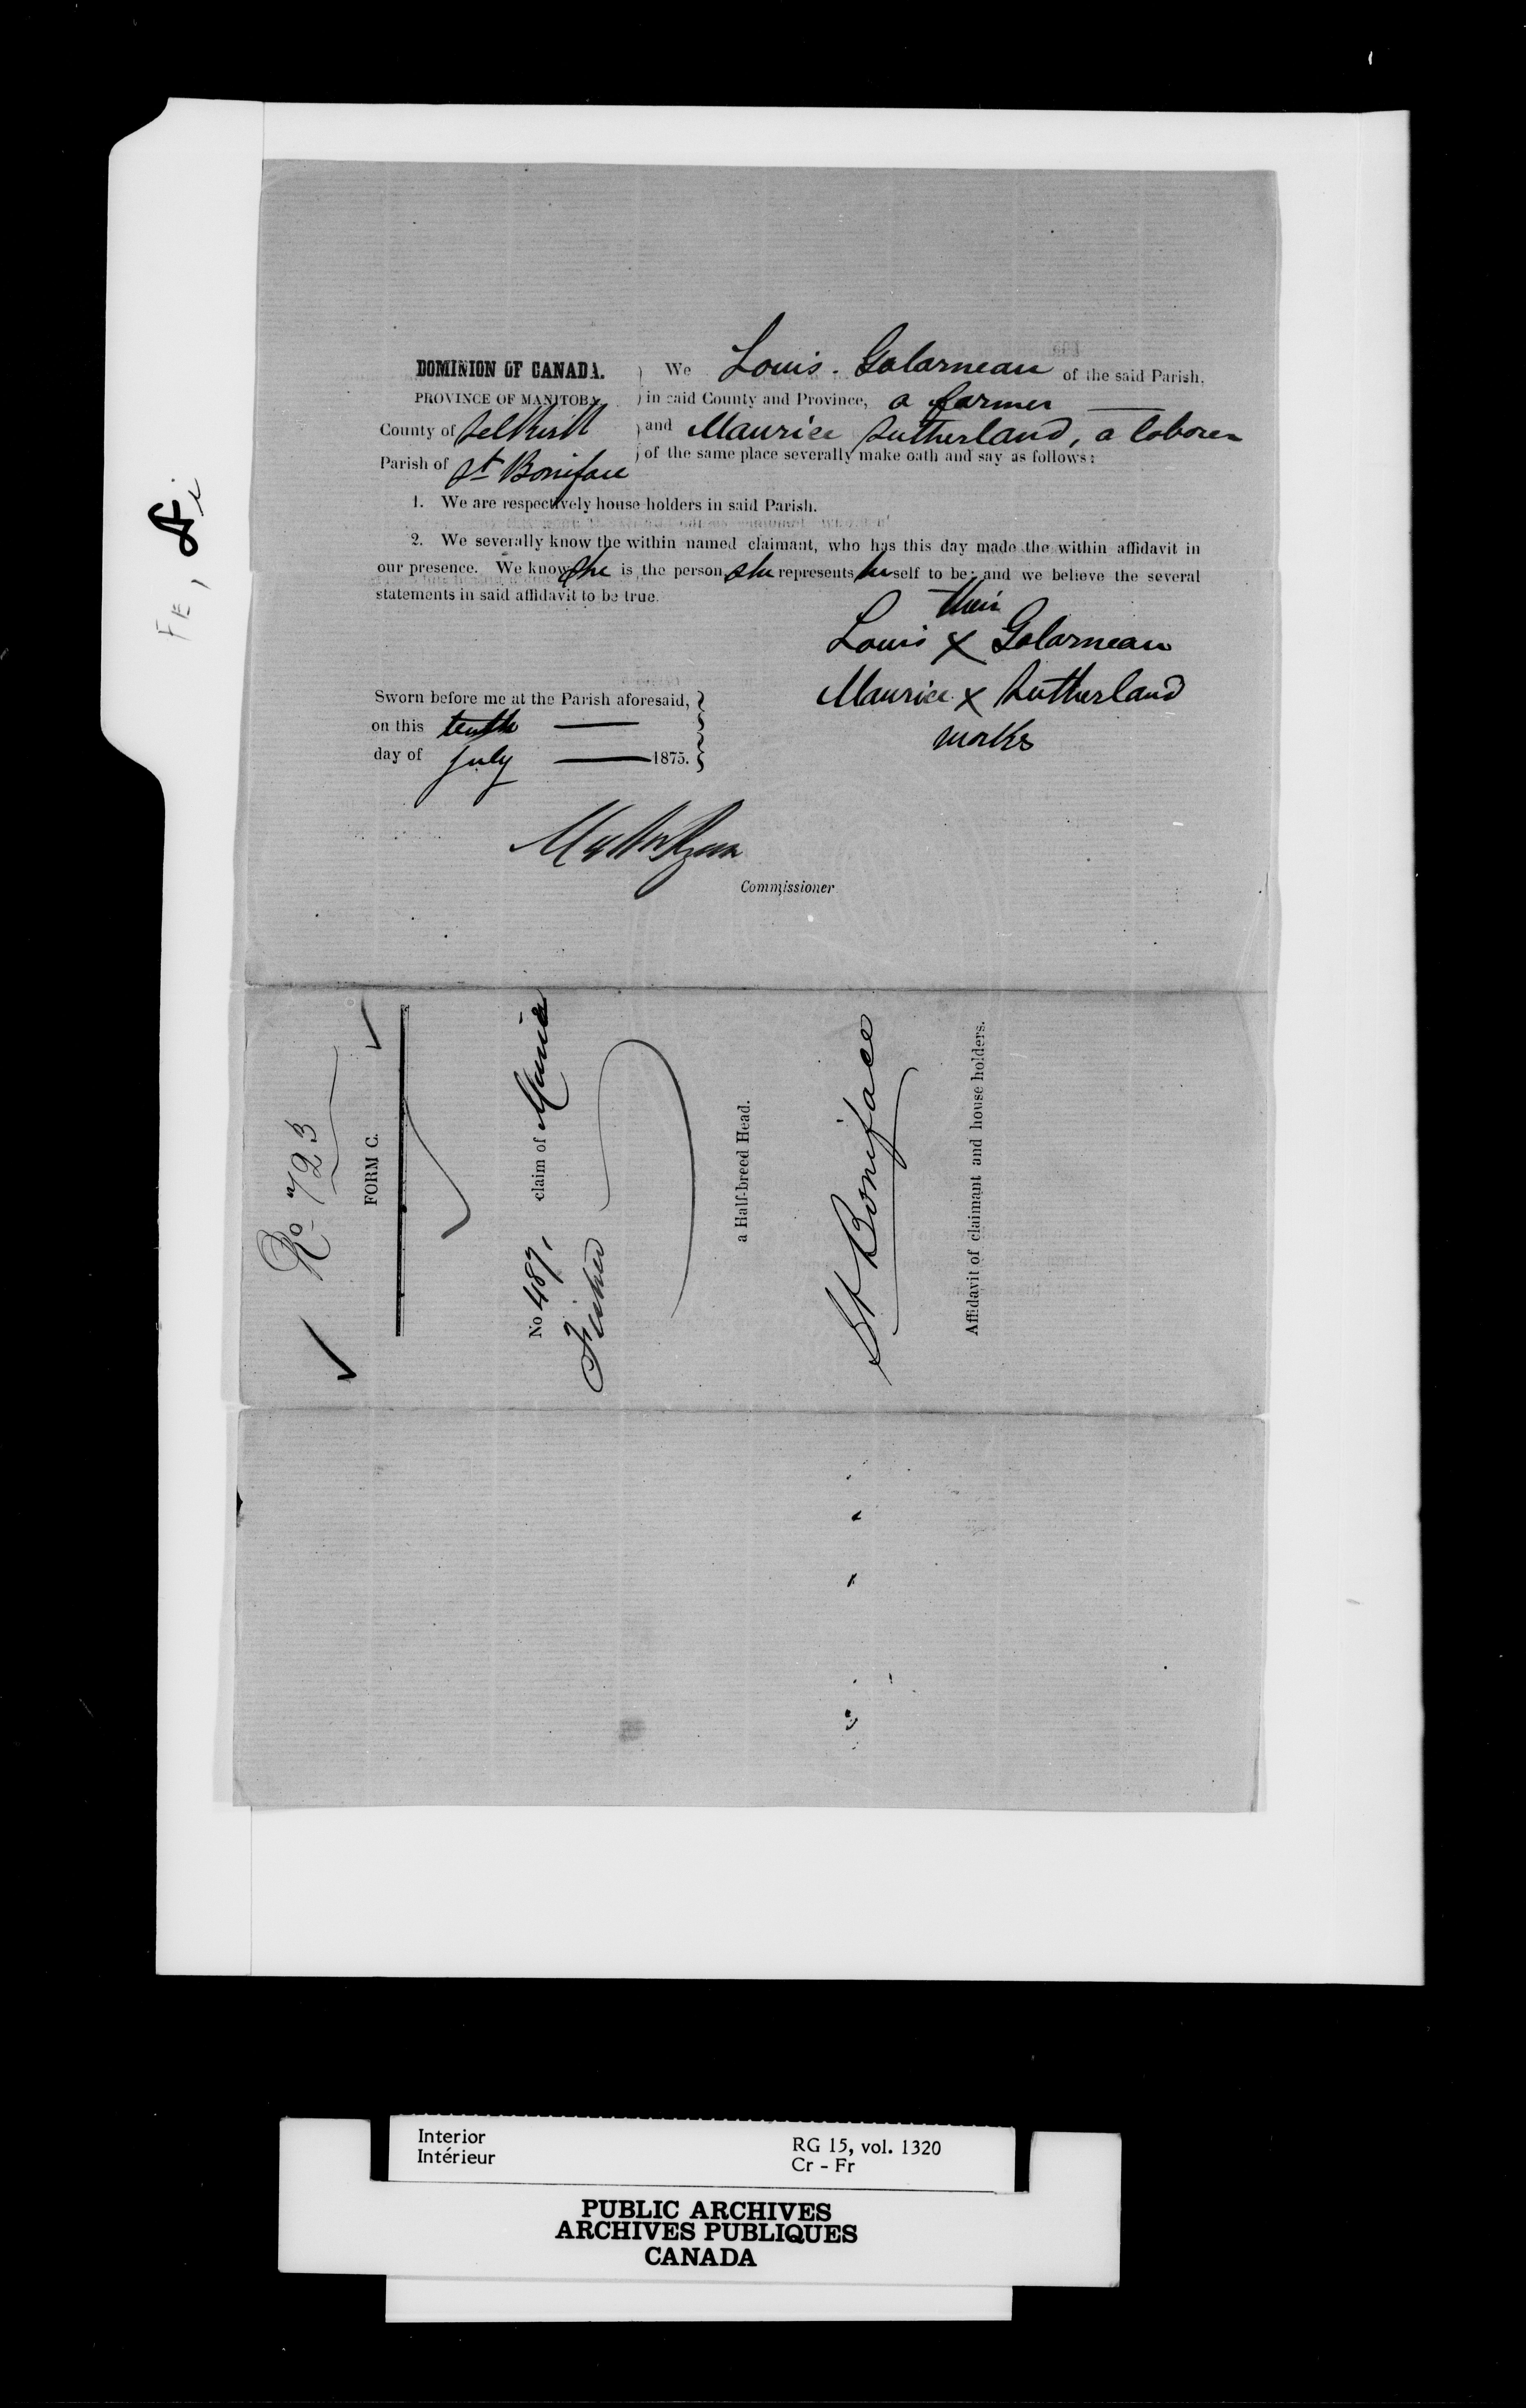 DOMINION OF CANADA. ) We Louis Galarneau of the said Parish,
PROVINCE OF MANITOBA, ) in said County and Province, a farmer
County of Selkirk ) and Maurice Sutherland, a laborer
Parish of St Boniface ) of the same place severally make oath and say as follows:
1. We are respectively house holders in said Parish.
2. We severally know the within named claimant, who has this day made the within affidavit in
our presence. We know She is the person she represents herself to be; and we believe the several
statements in said affidavit to be true.
their
Louis X Galarneau
Maurice X Sutherland
marks
Sworn before me at the Parish aforesaid,
on this tenth
day of July 1875.
Commissioner
723
FORM C.
No 487, claim of Maria
Fisher
a Half-breed Head.
St Boniface
Affidavit of claimant and house holders.
Interior
Intérieur
RG 15, vol. 1320
Cr - Fr
PUBLIC ARCHIVES
ARCHIVES PUBLIQUES
CANADA